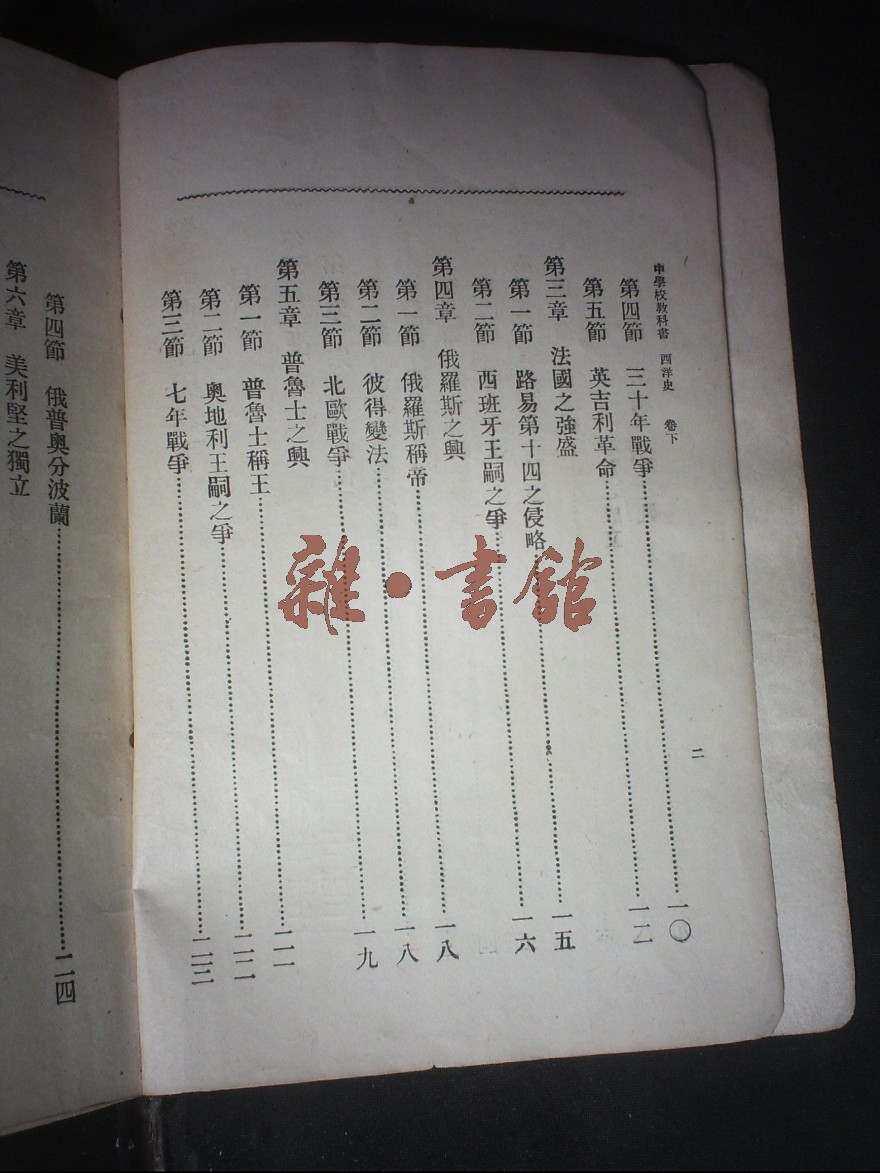 中學校教科書 西洋史 卷下
二
第四節 三十年戰爭……一〇
第五節 英吉利革命……一二
第三章 法國之強盛
第一節 路易第十四之侵略……一五
第二節 西班牙王嗣之爭……一六
第四章 俄羅斯之興
第一節 俄羅斯稱帝……一八
第二節 彼得變法……一八
第三節 北歐戰爭……一九
第五章 普魯士之興
第一節 普魯士稱王……二一
第二節 奧地利王嗣之爭……二二
第三節 七年戰爭……二三
第四節 俄普奧分波蘭……二四
第六章 美利堅之獨立
雜·書館